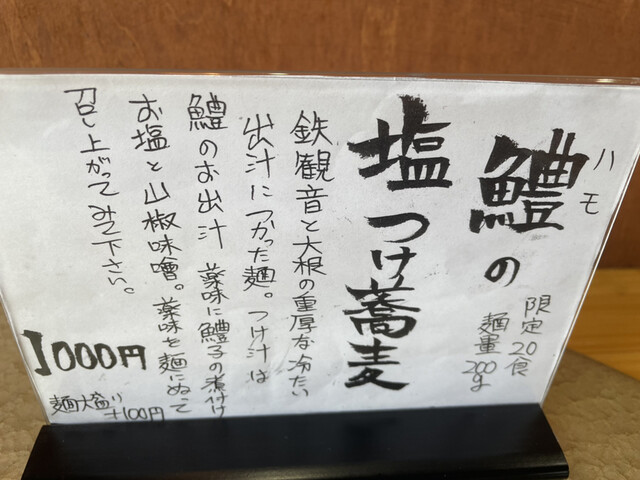 鱧の
ハモ
限定20食
麺量200g
塩つけ蕎麦
鉄観音と大根の重厚な冷たい
出汁につかった麺。つけ汁は
鱧のお出汁 薬味に鱧子の煮付け
お塩と山椒味噌。薬味を麺にぬって
召し上がってみて下さい。
1000円
麺大盛り
+100円